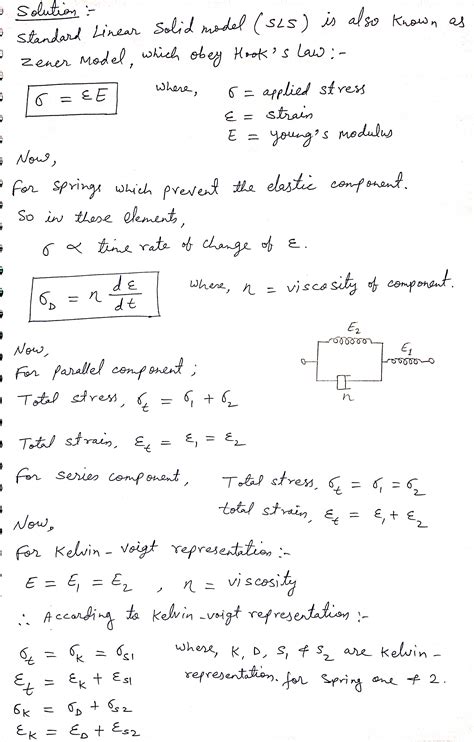 Solution :-
Standard Linear Solid model (SLS) is also known as
Zener Model, which obey Hook's Law :-
σ = εE
where, σ = applied stress
ε = strain
E = young's modulus
Now,
For springs which prevent the elastic component.
So in these elements,
σ ∝ time rate of change of ε.
σ_D = n dε/dt
where, n = viscosity of component.
Now,
For parallel component ;
Total stress, σ_t = σ_1 + σ_2
Total strain, ε_t = ε_1 = ε_2
E_2
E_1
n
For series component, Total stress, σ_t = σ_1 = σ_2
total strain, ε_t = ε_1 + ε_2
Now,
For Kelvin - Voigt representation :-
E = E_1 = E_2 , n = viscosity
∴ According to Kelvin - voigt representation :-
σ_t = σ_K = σ_S1
ε_t = ε_K + ε_S1
σ_K = σ_D + σ_S2
ε_K = ε_D + ε_S2
where, K, D, S_1 & S_2 are Kelvin -
representation. for spring one & 2.